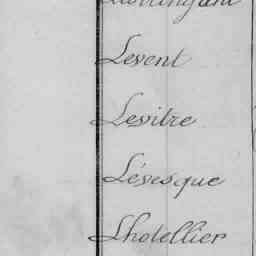 Levent
Levilre
Lévesque
Lhotellier